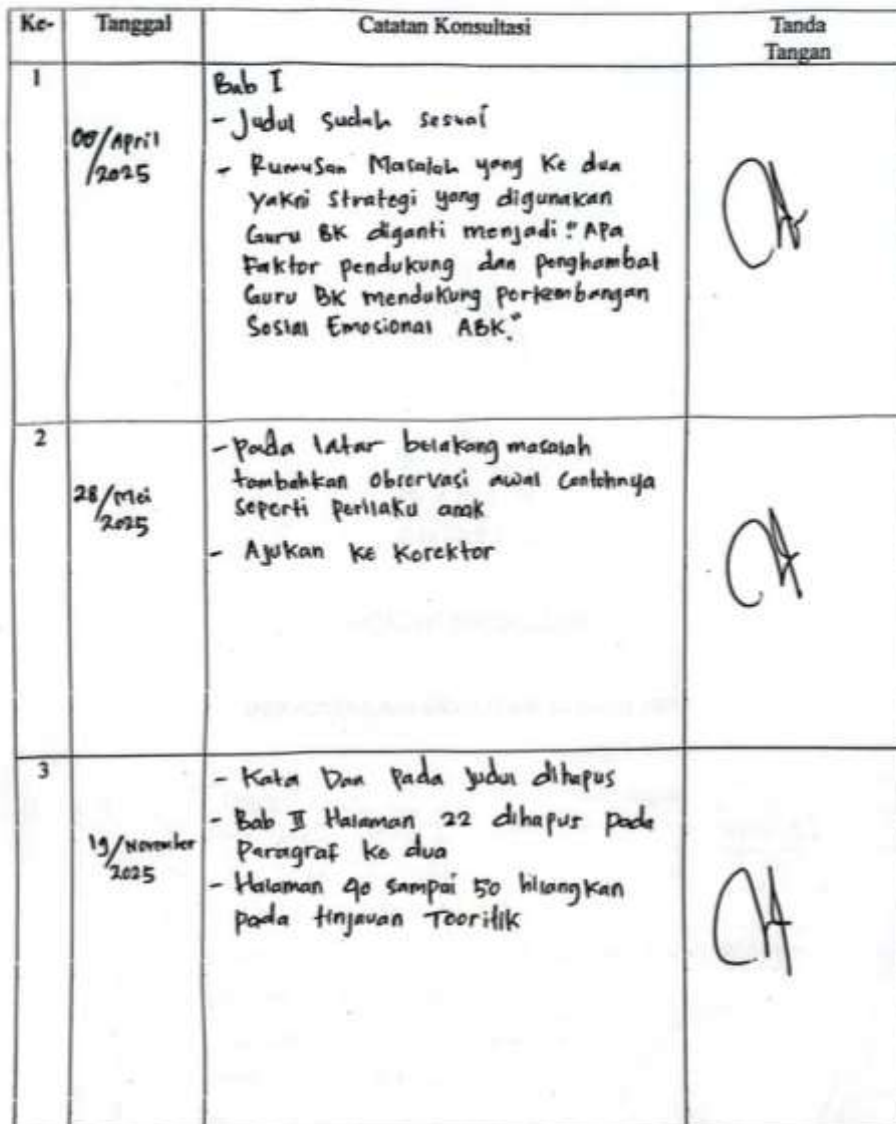 Ke- Tanggal Catatan Konsultasi Tanda
Tangan
1
Bab I
- Judul sudah sesuai
/April
2025
- Rumusan Masalah yang Ke dua
yakni strategi yang digunakan
Guru BK diganti menjadi "Apa
Faktor pendukung dan penghambat
Guru BK mendukung perkembangan
Sosial Emosional ABK."
2
- pada latar belakang masalah
tambahkan Observasi awal Contohnya
seperti perilaku anak
28/Mei
2025
- Ajukan ke Korektor
3
- Kata Dan pada Judul dihapus
- Bab II Halaman 22 dihapus pada
Paragraf ke dua
19/November
2025
- Halaman 40 sampai 50 hilangkan
pada tinjauan Teoritik